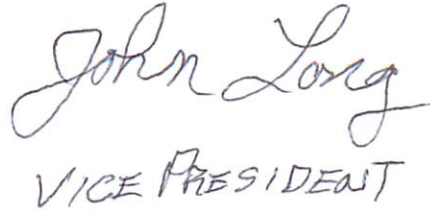 John Long
VICE PRESIDENT